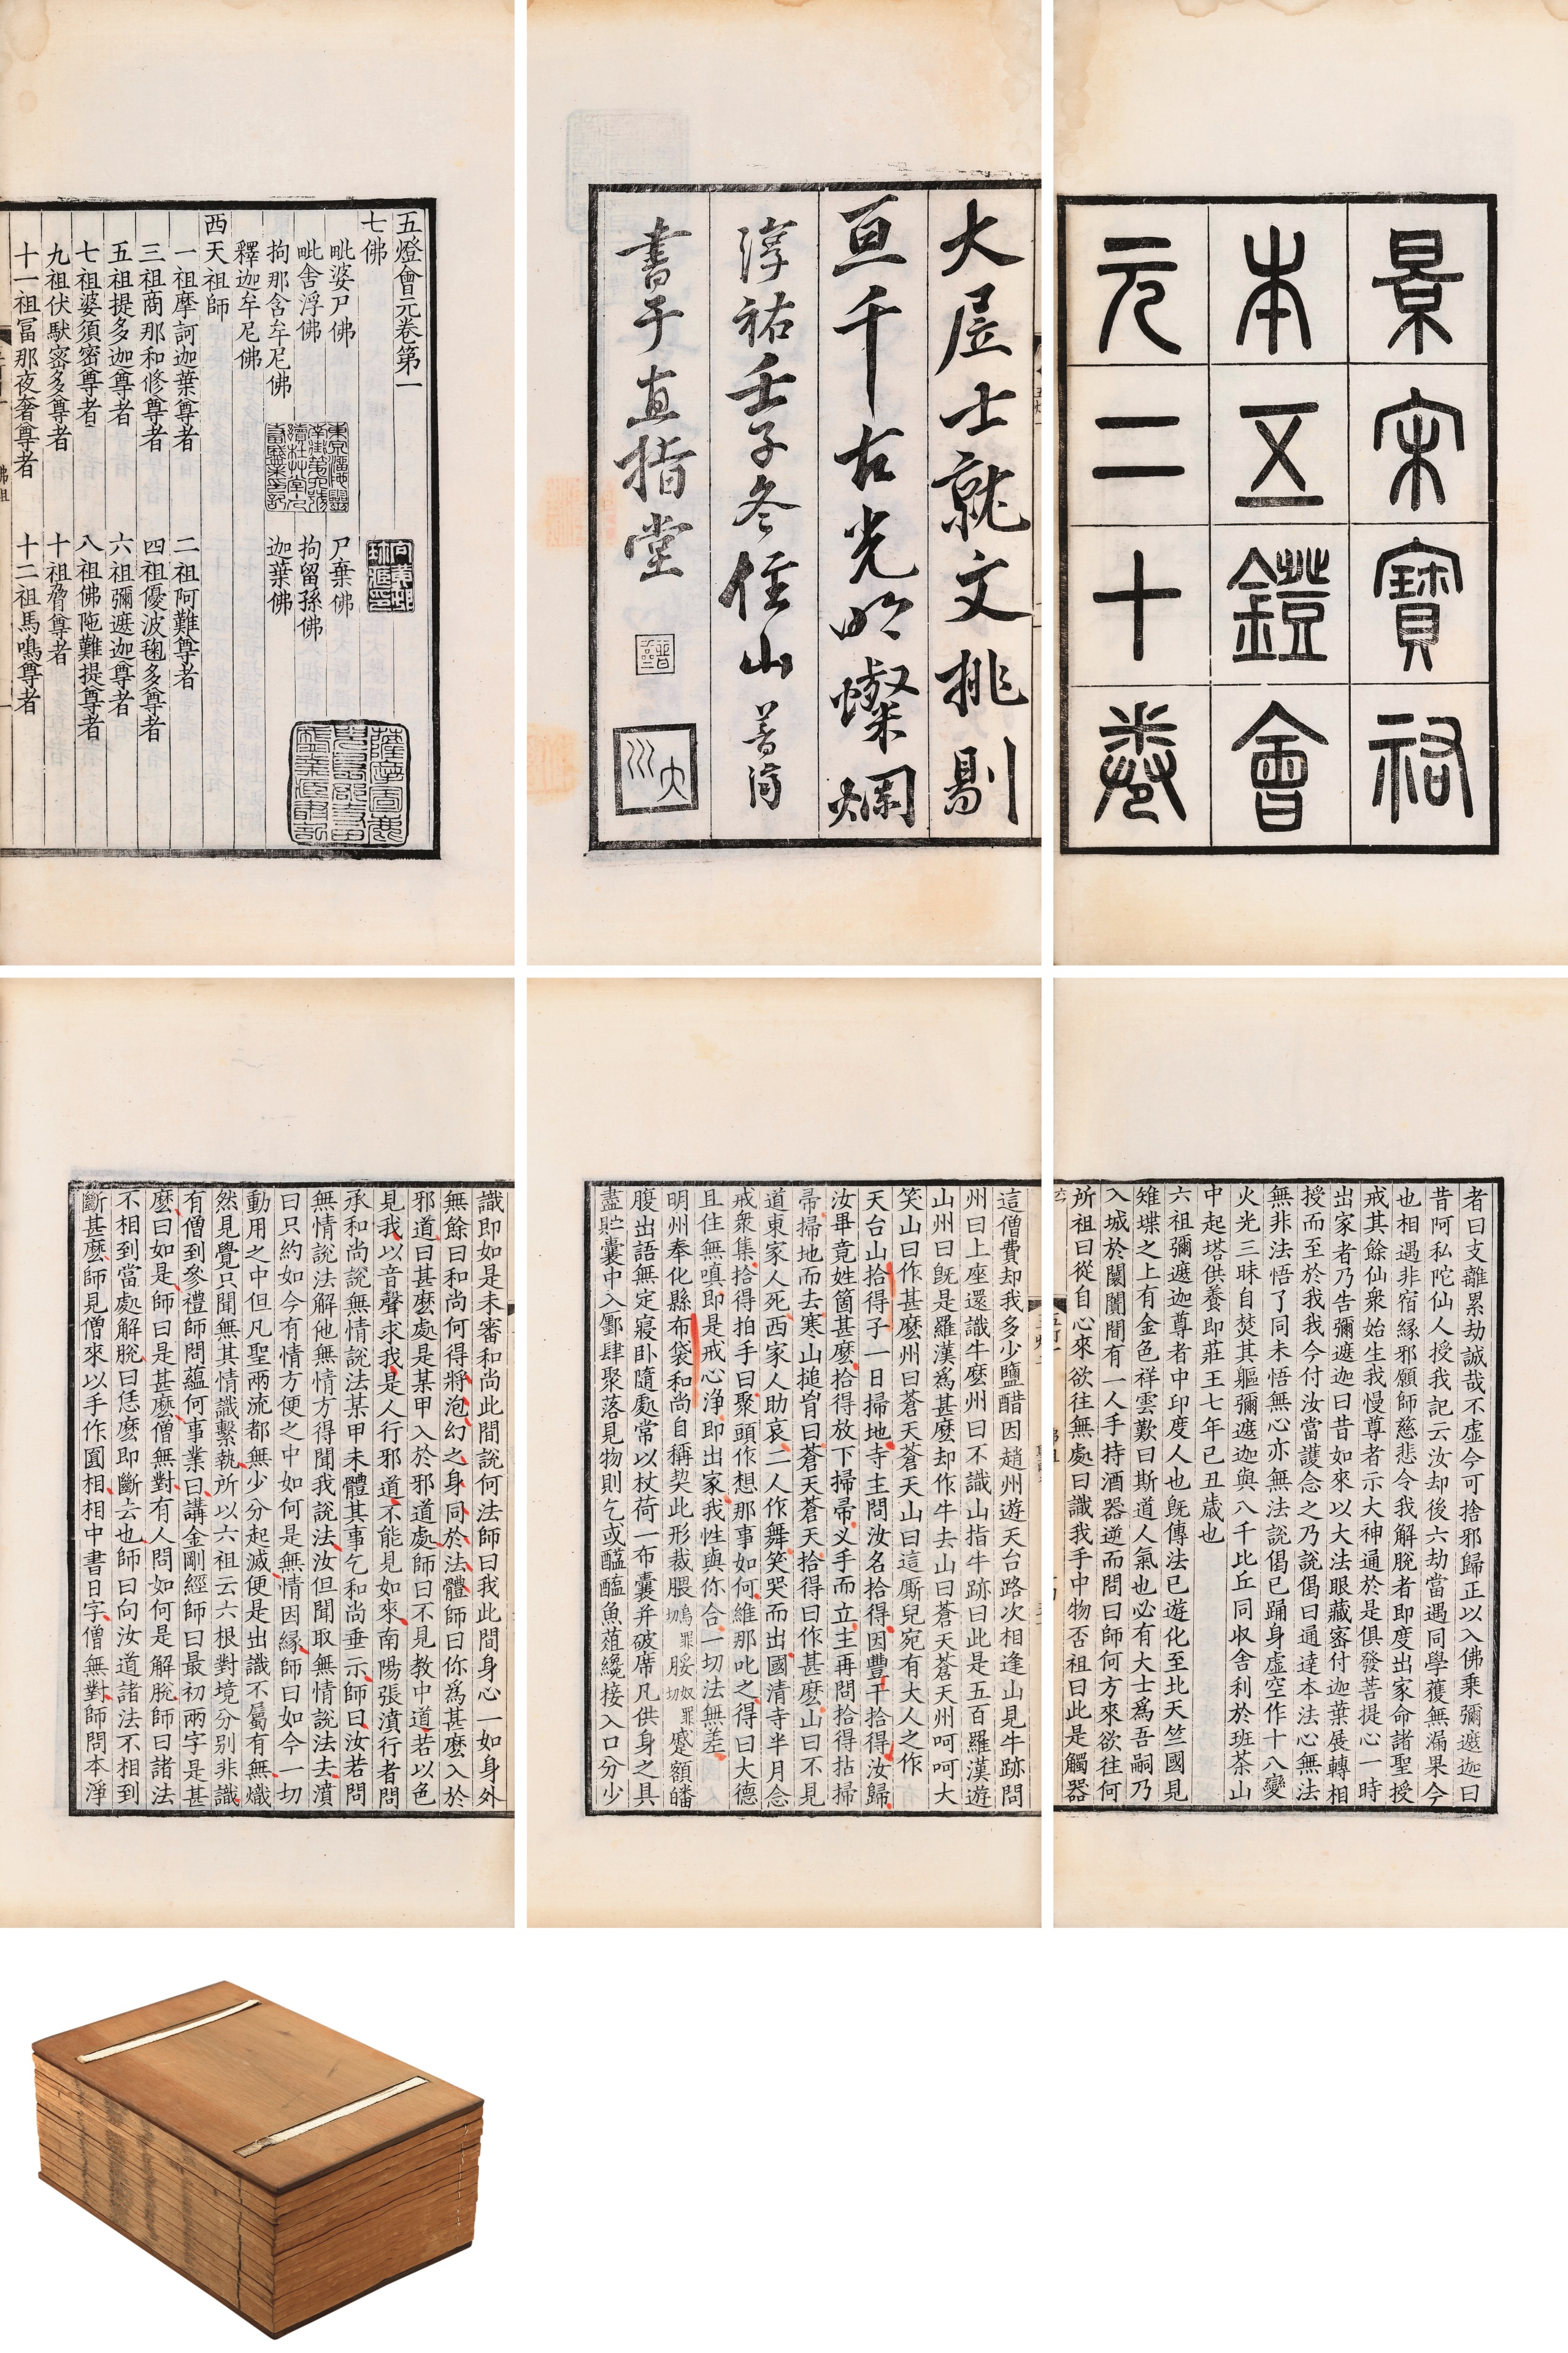 景宋寶祐
本五鐙會
元二十卷
大居士就文挑剔
亘千古光明燦爛
淳祐壬子冬住山普濟
書于直指堂
五燈會元卷第一
七佛
毗婆尸佛　尸棄佛
毗舍浮佛　拘留孫佛
拘那含牟尼佛　迦葉佛
釋迦牟尼佛
西天祖師
一祖摩訶迦葉尊者　二祖阿難尊者
三祖商那和修尊者　四祖優波毱多尊者
五祖提多迦尊者　六祖彌遮迦尊者
七祖婆須密尊者　八祖佛陁難提尊者
九祖伏馱密多尊者　十祖脅尊者
十一祖冨那夜奢尊者　十二祖馬鳴尊者
者曰支離累劫誠哉不虛今可捨邪歸正以入佛乘彌遮迦曰
昔阿私陀仙人授我記云汝却後六劫當遇同學獲無漏果今
也相遇非宿緣邪願師慈悲令我解脫者即度出家命諸聖授
戒其餘仙衆始生我慢尊者示大神通於是俱發菩提心一時
出家者乃告彌遮迦曰昔如來以大法眼藏密付迦葉展轉相
授而至於我我今付汝當護念之乃說偈曰通達本法心無法
無非法悟了同未悟無心亦無法說偈已踊身虛空作十八變
火光三昧自焚其軀彌遮迦與八千比丘同収舍利於班茶山
中起塔供養即莊王七年已丑歲也
六祖彌遮迦尊者中印度人也既傳法已遊化至北天竺國見
雉堞之上有金色祥雲歎曰斯道人氣也必有大士爲吾嗣乃
入城於闤闠間有一人手持酒器逆而問曰師何方來欲往何
所祖曰從自心來欲往無處曰識我手中物否祖曰此是觸器
這僧費却我多少鹽醋因趙州遊天台路次相逢山見牛跡問
州曰上座還識牛麽州曰不識山指牛跡曰此是五百羅漢遊
山州曰既是羅漢爲甚麽却作牛去山曰蒼天蒼天州呵呵大
笑山曰作甚麽州曰蒼天蒼天山曰這厮兒宛有大人之作
天台山拾得子一日掃地寺主問汝名拾得因豐干拾得汝歸
汝畢竟姓箇甚麽拾得放下掃帚叉手而立主再問拾得拈掃
帚掃地而去寒山搥胷曰蒼天蒼天拾得曰作甚麽山曰不見
道東家人死西家人助哀二人作舞笑哭而出國清寺半月念
戒衆集拾得拍手曰聚頭作想那事如何維那叱之得曰大德
且住無嗔即是戒心淨即出家我性與你合一切法無差
明州奉化縣布袋和尚自稱契此形裁腲烏罪切脮奴罪切蹙額皤
腹出語無定寢卧隨處常以杖荷一布囊并破席凡供身之具
盡貯囊中入鄽肆聚落見物則乞或醯醢魚葅纔接入口分少
識即如是未審和尚此間說何法師曰我此間身心一如身外
無餘曰和尚何得將泡幻之身同於法體師曰你爲甚麽入於
邪道曰甚麽處是某甲入於邪道處師曰不見教中道若以色
見我以音聲求我是人行邪道不能見如來南陽張濆行者問
承和尚說無情說法某甲未體其事乞和尚垂示師曰汝若問
無情說法解他無情方得聞我說法汝但聞取無情說法去濆
曰只約如今有情方便之中如何是無情因緣師曰如今一切
動用之中但凡聖兩流都無少分起滅便是出識不屬有無熾
然見覺只聞無其情識繫執所以六祖云六根對境分別非識
有僧到參禮師問蘊何事業曰講金剛經師曰最初兩字是甚
麽曰如是師曰是甚麽僧無對有人問如何是解脫師曰諸法
不相到當處解脫曰恁麽即斷去也師曰向汝道諸法不相到
斷甚麽師見僧來以手作圓相相中書日字僧無對師問本淨